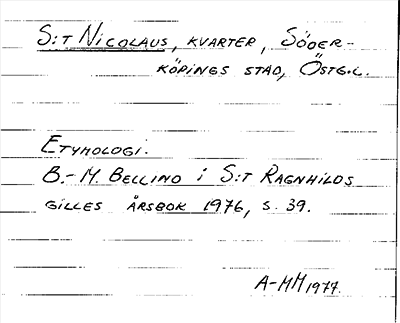 S:t Nicolaus, kvarter, Söder-
köpings stad, Östg.l.
Etymologi.
B.-M. Bellind i S:t Ragnhilds
gilles årsbok 1976, s. 39.
A-MM 1977.